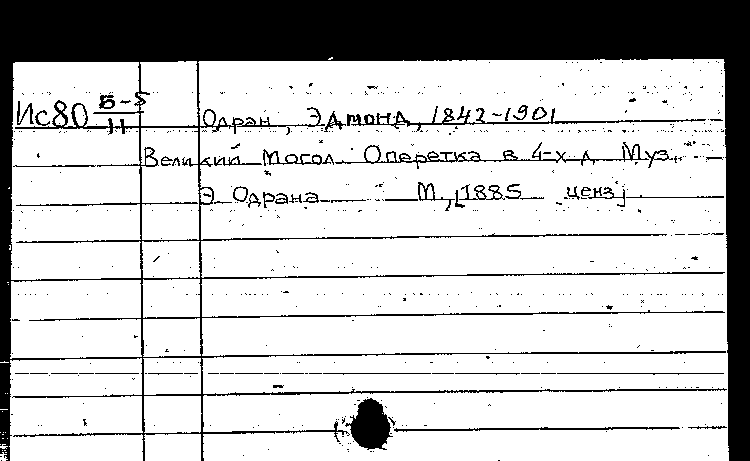 Ис80 Б-5/11 Одран, Эдмонд, 1842-1901
Великий Могол. Оперетка в 4-х д. Муз.
Э. Одрана М., [1885 ценз]